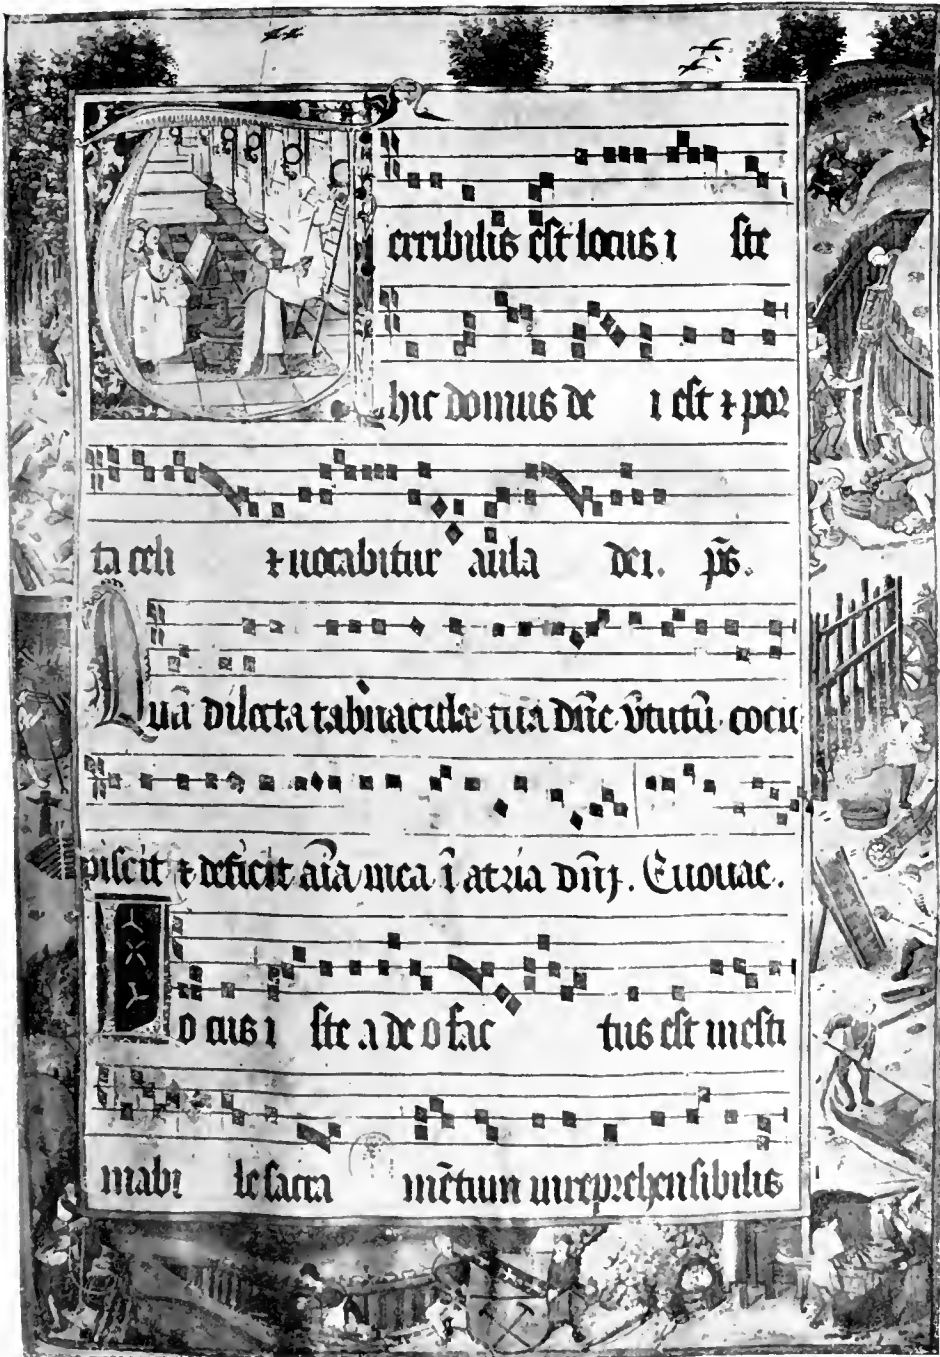 Terribilis est locus i ste
hic domus de i est ⁊ por
ta celi ⁊ uocabitur aula dei. ps̄.
Quā dilecta tab̓nacula tua dn̄e v̄tutū. cōcu
piscit ⁊ deficit aīa mea ī atria dn̄j. Euouae.
Locus i ste a de o fac tus est inesti
mabi le sacra mētum irreprehensibilis